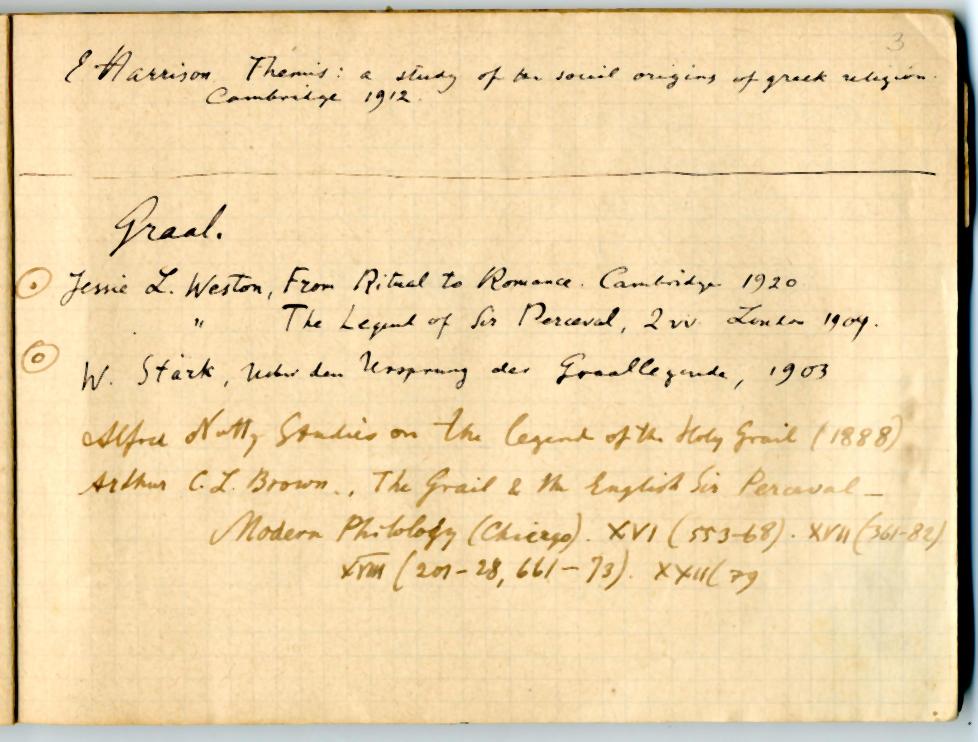 3
E Harrison Themis: a study of the social origins of greek religion.
Cambridge 1912.
Graal.
Jessie L. Weston, From Ritual to Romance. Cambridge 1920
" The Legend of Sir Perceval, 2 vv. London 1909.
W. Stärk, Ueber den Ursprung der Graallegende, 1903
Alfred Nutt, Studies on the legend of the Holy Grail (1888)
Arthur C. L. Brown., The Grail & the English Sir Perceval —
Modern Philology (Chicago). XVI (553-68). XVII (361-82)
XVIII (201-28, 661-73). XXII (79